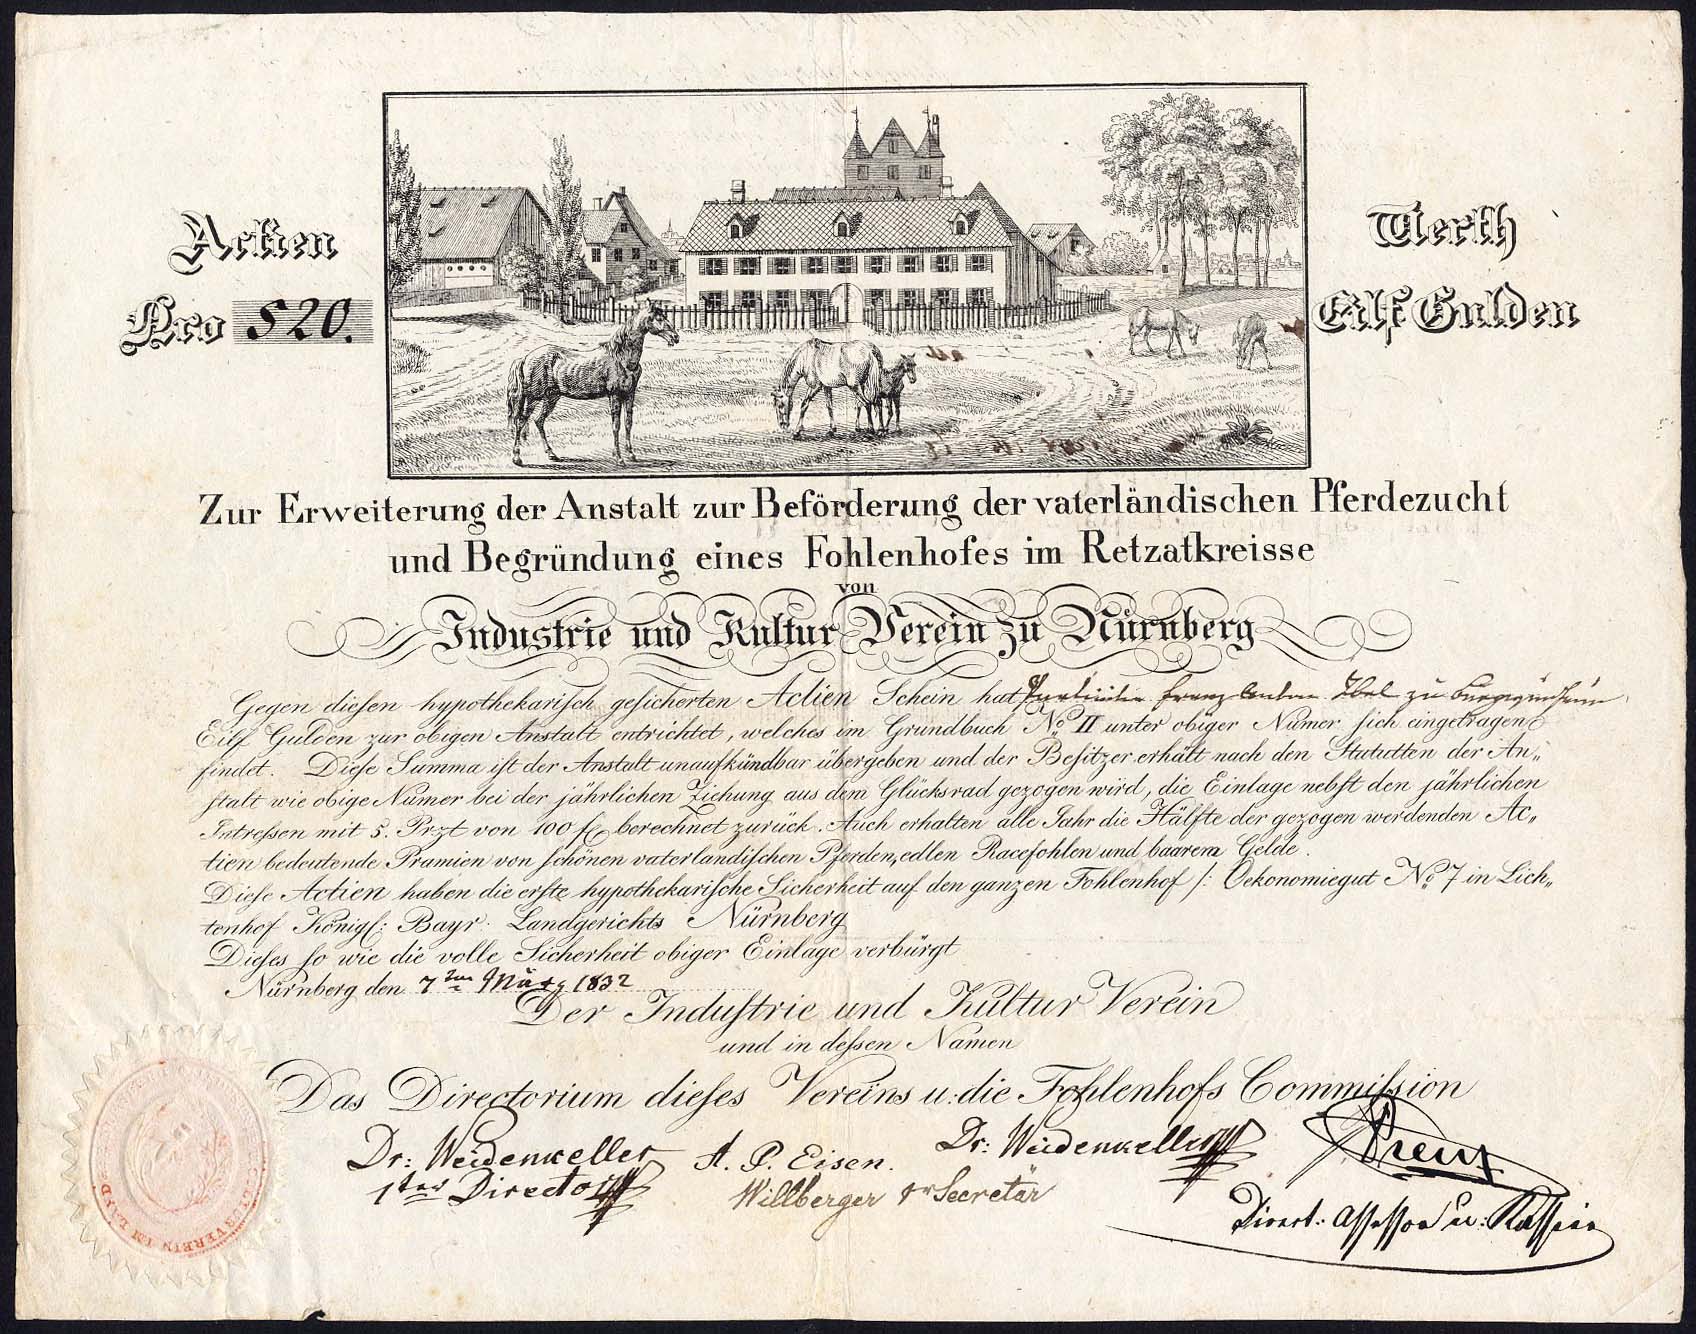 Actien
Nro 520.
Werth
Eilf Gulden
Zur Erweiterung der Anstalt zur Beförderung der vaterländischen Pferdezucht
und Begründung eines Fohlenhofes im Retzatkreisse
von
Industrie und Kultur Verein zu Nürnberg
Gegen diesen hypothekarisch gesicherten Actien Schein hat Franz zu
Eilf Gulden zur obigen Anstalt entrichtet, welches im Grundbuch No II unter obiger Numer sich eingetragen
findet. Diese Summa ist der Anstalt unaufkündbar übergeben und der Besitzer erhält nach den Statutten der An„
stalt wie obige Numer bei der jährlichen Ziehung aus dem Glücksrad gezogen wird, die Einlage nebst den jährlichen
Intressen mit 5. Przt von 100 fl berechnet zurück. Auch erhalten alle Jahr die Hälfte der gezogen werdenden Ac„
tien bedeutende Pramien von schönen vaterlandischen Pferden, edlen Racefohlen und baarem Gelde.
Diese Actien haben die erste hypothekarische Sicherheit auf den ganzen Fohlenhof /: Oekonomiegut No 7 in Lich„
tenhof Königl: Bayr. Landgerichts Nürnberg
Dieses so wie die volle Sicherheit obiger Einlage verbürgt
Nürnberg den 7ten März 1832
Der Industrie und Kultur Verein
und in dessen Namen
Das Directorium dieses Vereins u: die Fohlenhofs Commission
Dr: Weidenkeller
1ter Director
A. P. Eisen.
Willberger Secretär
Dr: Weidenkeller
Direct: Assessor u: Kassier
VEREIN IM